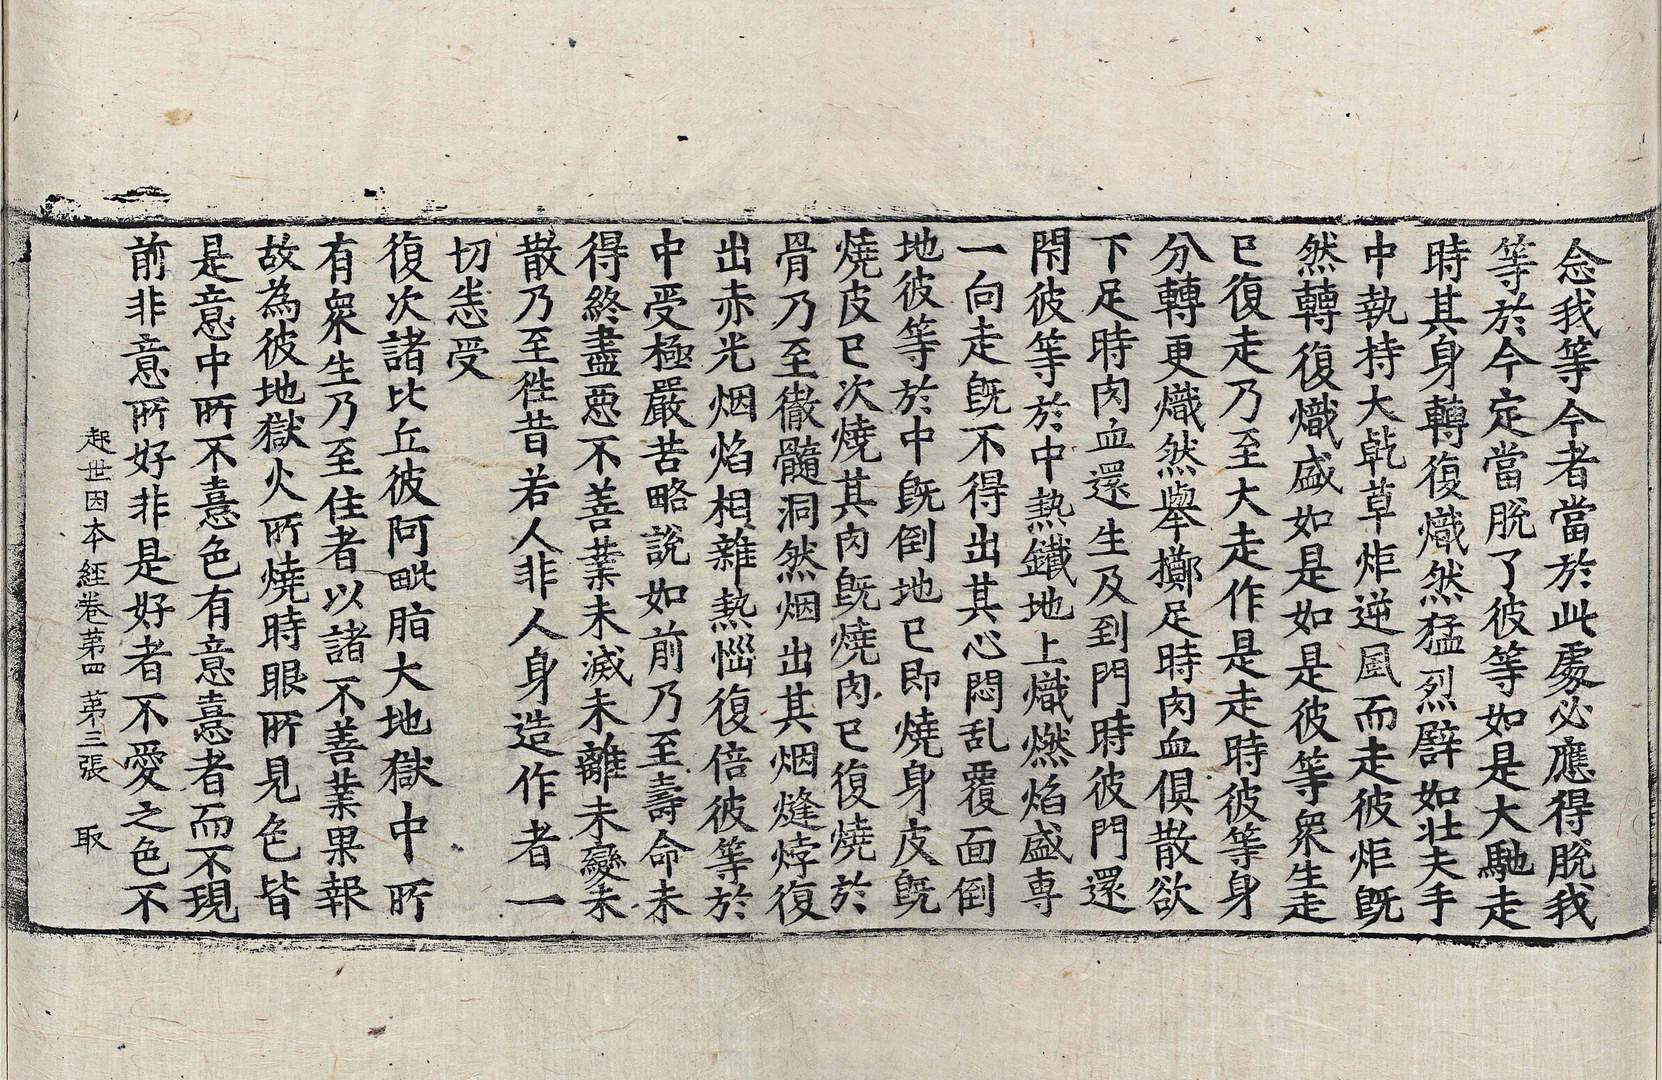 念我等今者當於此處必應得脫我
等於今定當脫了彼等如是大馳走
時其身轉復熾然猛烈譬如壯夫手
中執持大乹草炬逆風而走彼炬旣
然轉復熾盛如是如是彼等衆生走
已復走乃至大走作是走時彼等身
分轉更熾然舉擲足時肉血俱散欲
下足時肉血還生及到門時彼門還
閇彼等於中熱鐵地上熾燃焰盛専
一向走旣不得出其心悶乱覆面倒
地彼等於中旣倒地已即燒身皮旣
燒皮已次燒其肉旣燒肉已復燒於
骨乃至徹髓洞然烟出其烟熢㶿復
出赤光烟焰相雜熱惱復倍彼等於
中受極嚴苦略說如前乃至壽命未
得終盡惡不善業未滅未離未變未
散乃至徃昔若人非人身造作者一
切悉受
復次諸比丘彼阿毗脂大地獄中所
有衆生乃至住者以諸不善業果報
故為彼地獄火所燒時眼所見色皆
是意中所不憙色有意憙者而不現
前非意所好非是好者不愛之色不
起世因本經卷苐四　苐三張　取